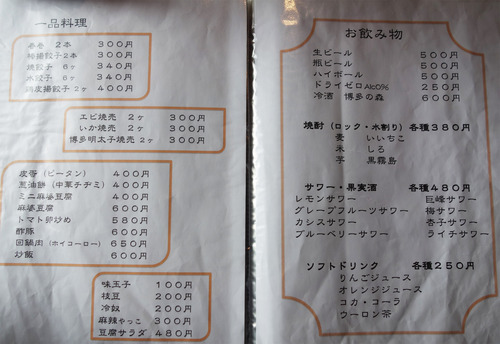 一品料理
春巻 2本 300円
棒揚餃子2本 300円
焼餃子 6ヶ 340円
水餃子 6ヶ 340円
鶏皮揚餃子 2ヶ 400円
エビ焼売 2ヶ 300円
いか焼売 2ヶ 300円
博多明太子焼売 2ヶ 300円
皮蛋(ピータン) 400円
葱油餅(中華チヂミ) 400円
ミニ麻婆豆腐 400円
麻婆豆腐 600円
トマト卵炒め 580円
酢豚 600円
回鍋肉(ホイコーロー) 650円
炒飯 600円
味玉子 100円
枝豆 200円
冷奴 200円
麻辣やっこ 300円
豆腐サラダ 480円
お飲み物
生ビール 500円
瓶ビール 500円
ハイボール 500円
ドライゼロAlc0% 250円
冷酒 博多の森 600円
焼酎(ロック・水割り) 各種380円
麦 いいちこ
米 しろ
芋 黒霧島
サワー・果実酒 各種480円
レモンサワー 巨峰サワー
グレープフルーツサワー 梅サワー
カシスサワー 杏子サワー
ブルーベリーサワー ライチサワー
ソフトドリンク 各種250円
りんごジュース
オレンジジュース
コカ・コーラ
ウーロン茶